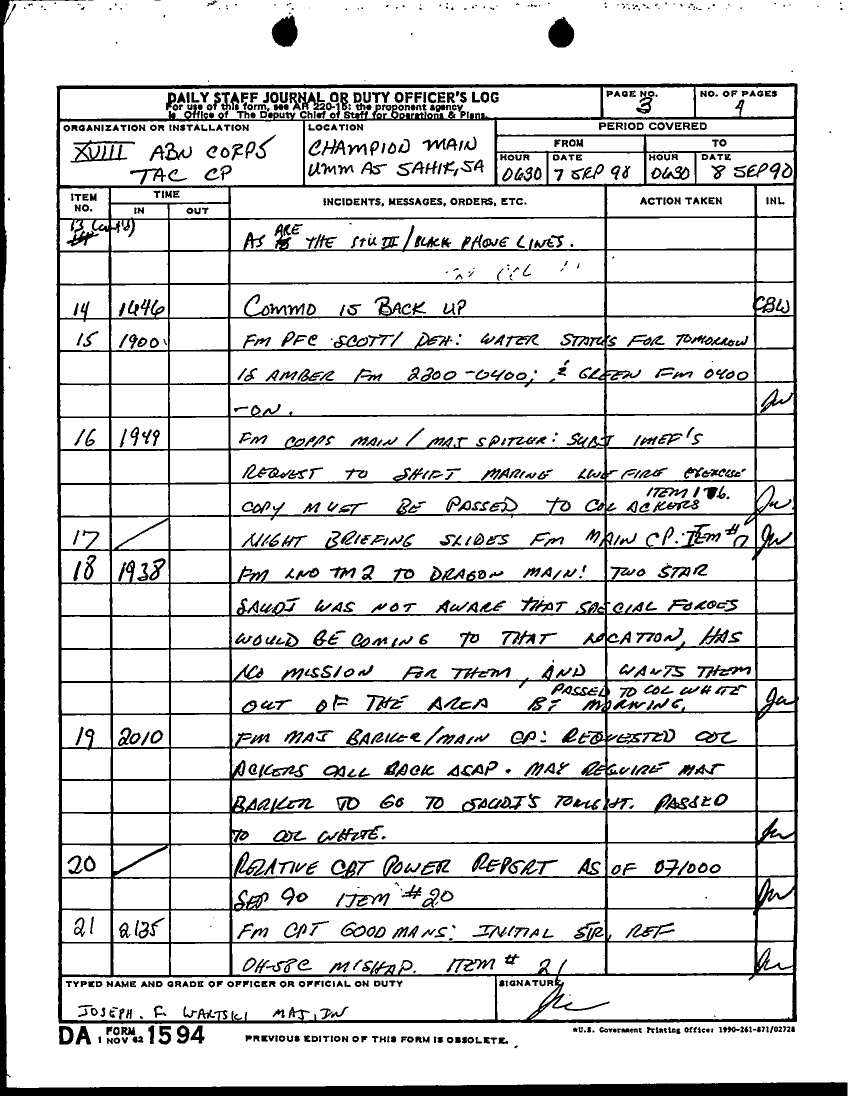 DAILY STAFF JOURNAL OR DUTY OFFICER'S LOG
For use of this form, see AR 220-15; the proponent agency
is Office of The Deputy Chief of Staff for Operations & Plans.
PAGE NO.
3
NO. OF PAGES
4
ORGANIZATION OR INSTALLATION
XVIII ABN CORPS
TAC CP
LOCATION
CHAMPION MAIN
UMM AS SAHIK, SA
PERIOD COVERED
FROM
TO
HOUR
0630
DATE
7 SEP 90
HOUR
0630
DATE
8 SEP 90
ITEM NO.
TIME
IN
OUT
INCIDENTS, MESSAGES, ORDERS, ETC.
ACTION TAKEN
INL
13 (cont'd)
AS ARE THE STU III/BLACK PHONE LINES.
14 1646 COMMO IS BACK UP CBW
15 1900 FM PFC SCOTT/ DEH: WATER STATUS FOR TOMORROW
IS AMBER FM 2200-0400; & GREEN FM 0400
-ON. JW
16 1949 FM CORPS MAIN / MAJ SPITLER: SUBJ IMEF'S
REQUEST TO SHIFT MARINE LIVE FIRE EXERCISE
COPY MUST BE PASSED TO COL ACKERS ITEM 16. JW
17 NIGHT BRIEFING SLIDES FM MAIN CP. ITEM #17 JW
18 1938 FM LNO TM 2 TO DRAGON MAIN! TWO STAR
SAUDI WAS NOT AWARE THAT SPECIAL FORCES
WOULD BE COMING TO THAT LOCATION, HAS
NO MISSION FOR THEM, AND WANTS THEM
OUT OF THE AREA BY MORNING. PASSED TO COL WHITE JW
19 2010 FM MAJ BARKER/MAIN CP: REQUESTED COL
ACKERS CALL BACK ASAP. MAY REQUIRE MAJ
BARKER TO GO TO SAUDI'S TONIGHT. PASSED
TO COL WHITE. JW
20 RELATIVE CBT POWER REPORT AS OF 071000
SEP 90 ITEM #20 JW
21 2135 FM CPT GOODMANS: INITIAL SIR, REF
OH-58C MISHAP. ITEM # 21 JW
TYPED NAME AND GRADE OF OFFICER OR OFFICIAL ON DUTY
JOSEPH. F. WARTSKI MAJ, IN
SIGNATURE
DA FORM 1594
1 NOV 62
PREVIOUS EDITION OF THIS FORM IS OBSOLETE.
*U.S. Government Printing Office: 1990-261-871/02728